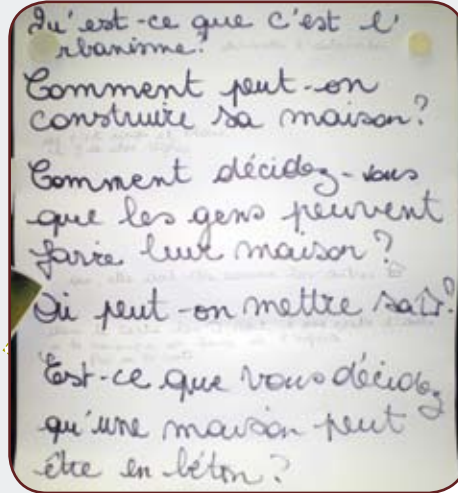 Qu'est-ce que c'est l'
urbanisme?
Comment peut-on
construire sa maison?
Comment décidez-vous
que les gens peuvent
faire leur maison?
Où peut-on mettre sa
Est-ce que vous décidez
qu'une maison peut
être en béton?